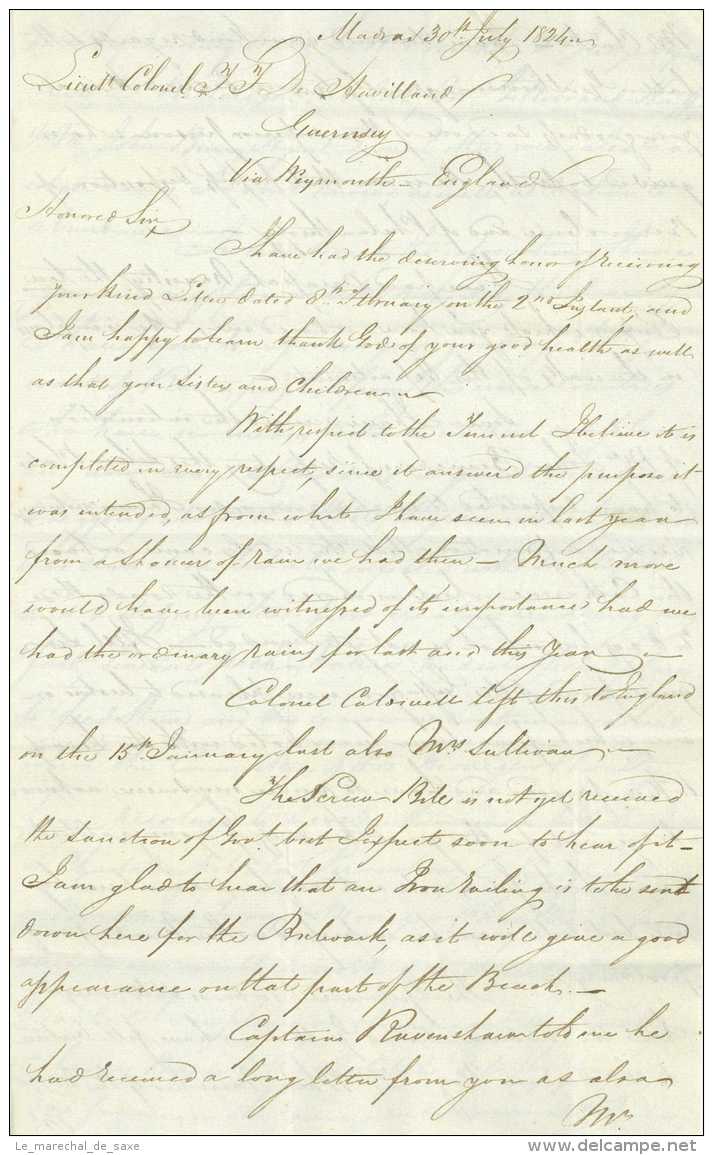 Madras 30th July 1824
Lieutt. Colonel T F De Havilland
Guernsey
Via Weymouth - England
Honored Sir,
I have had the deserving honor of receiving
your kind Letter dated 8th February on the 2nd Instant, and
I am happy to learn thank God of your good health as well
as that your Sister and Children
With respect to the Tunnel I believe it is
completed in every respect, since it answer'd the purpose it
was intended, as from what I have seen in last year
from a shower of rain we had then - Much more
would have been witnessed of its importance had we
had the ordinary rains for last and this Year
Colonel Caldwell left this to England
on the 15th January last also Mrs Sullivan
The Screw is not yet received
the sanction of Govt. but I expect soon to hear of it -
I am glad to hear that an Iron railing is to be sent
down here for the Bulwark, as it will give a good
appearance on that part of the Beach. -
Captain Ravenshaw told me he
had received a long letter from you as also
Mr
Le_marechal_de_saxe
delcampe.net